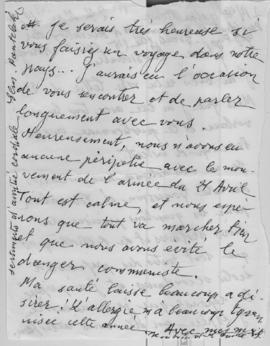 * Je serais très heureuse si
vous faisiez un voyage dans notre
pays... J'aurais eu l'occasion
de vous rencontrer et de parler
longuement avec vous.
Heureusement, nous n'avons eu
aucune péripétie avec le mou-
vement de l'armée du 21 Avril
Tout est calme, et nous espé-
rons que tout va marcher bien
et que nous avons évité le
danger communiste.
Ma santé laisse beaucoup a dé-
sirer! L'allergie m'a beaucoup
cette année. Avec mes
sentiments et amitié cordiale